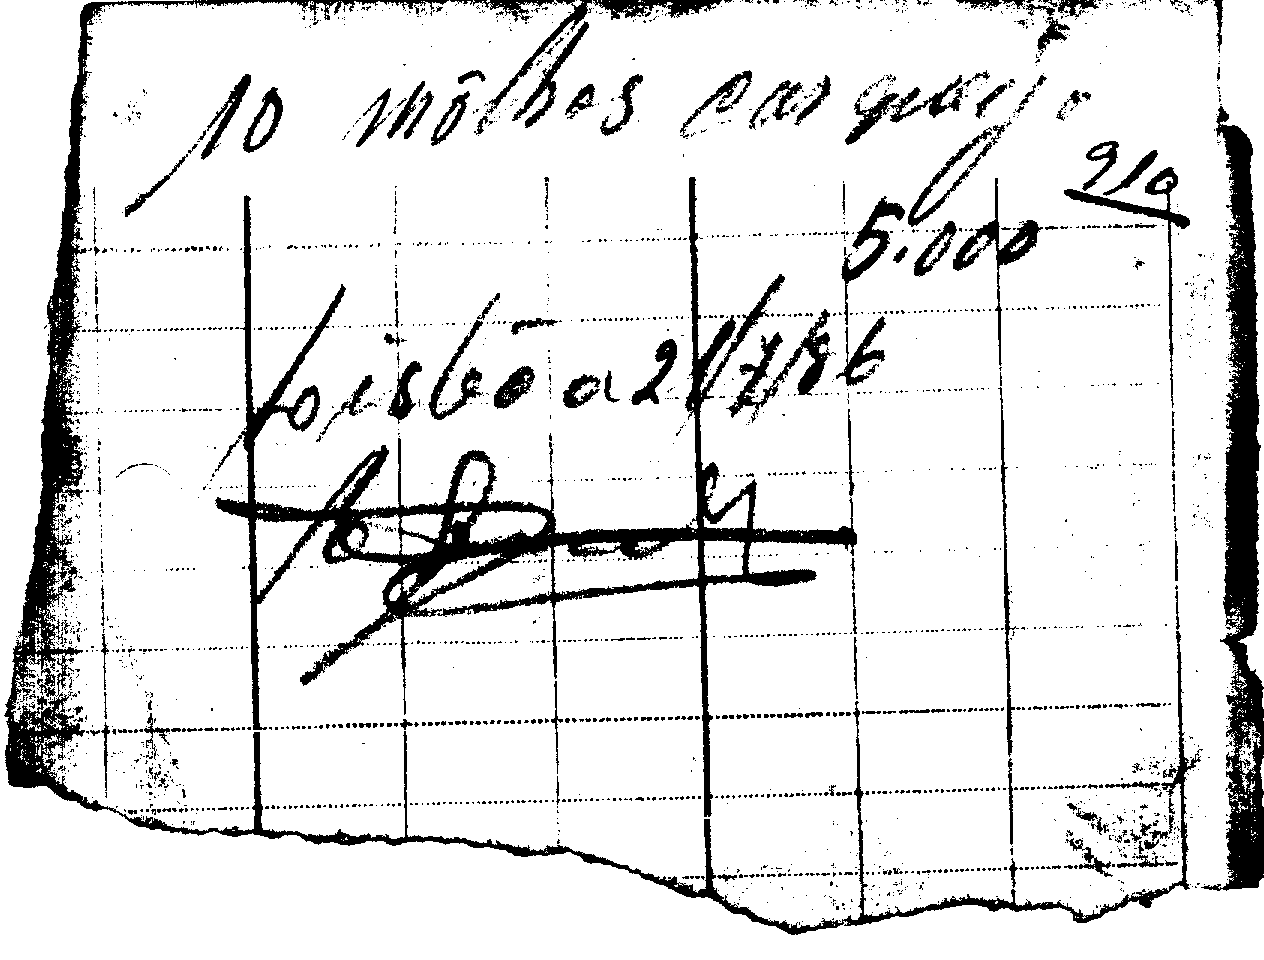 10 môlhes carqueja
910
5.000
Foistõa 21/7/86